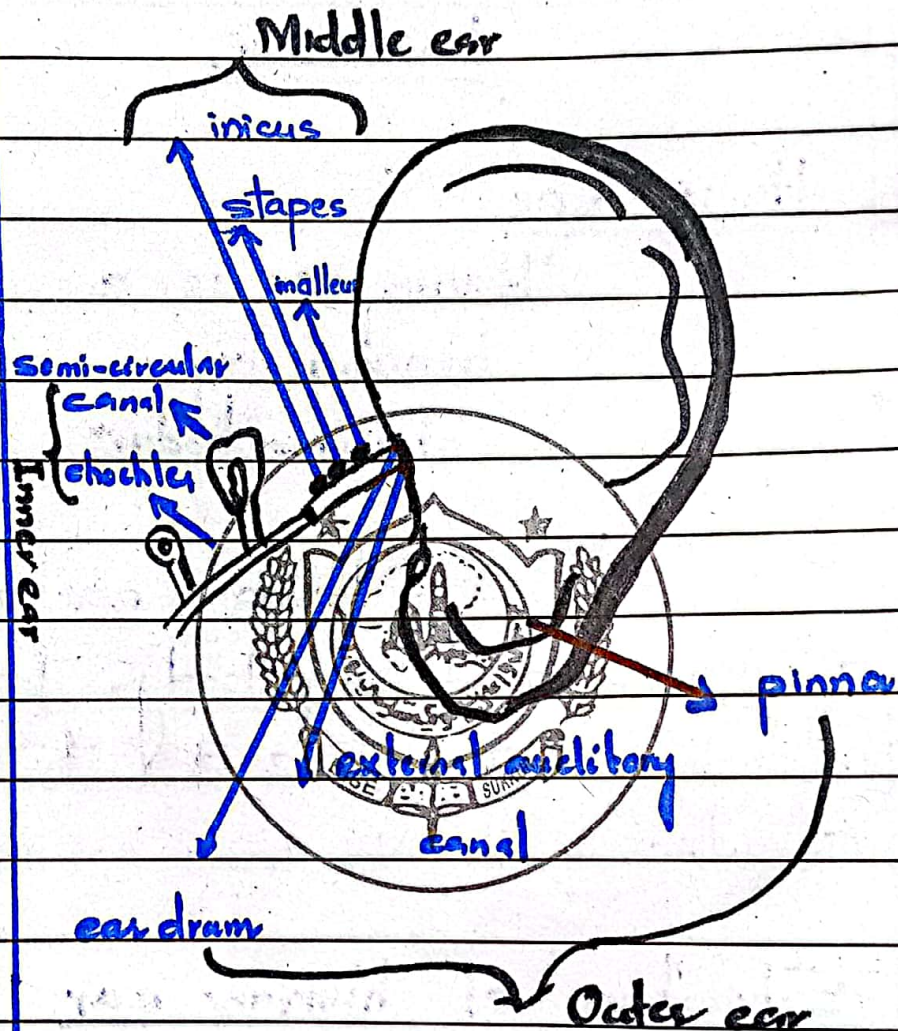 Middle ear
inicus
stapes
malleus
semi-circular
canal
chochlea
Inner ear
pinna
external auditory
canal
ear dram
Outer ear